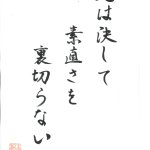 は決して
素直さを
裏切らない